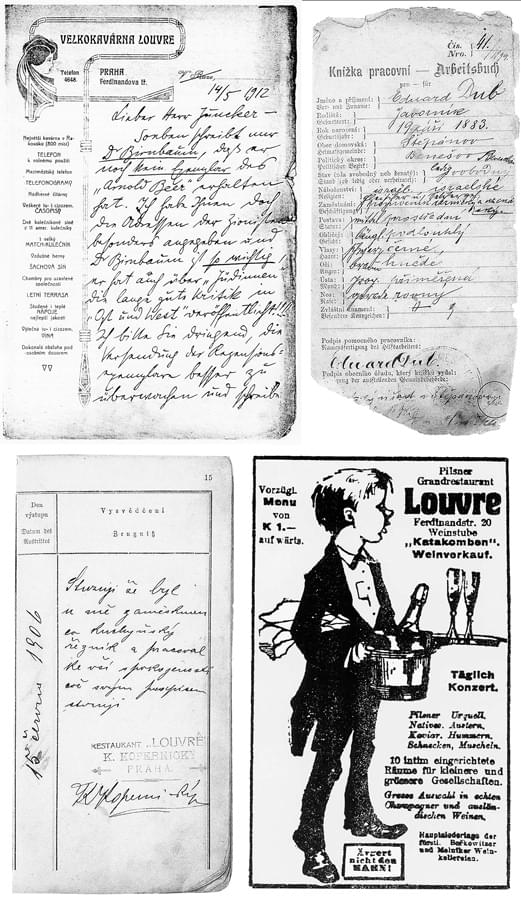 VELKOKAVÁRNA LOUVRE
Telefon
4648.
PRAHA
Ferdinandova tř.
14/5 1912
Lieber Herr Juncker –
Soeben schreibt mir
Dr Birnbaum, daß er
noch kein Exemplar des
„Arnold Beer“ erhalten
hat. Ich habe Ihnen doch
die Adressen der Zionisten
besonders angegeben und
Dr Birnbaum ist so wichtig,
er hat auch über „Jüdinnen“
die lange gute Kritik in
„Ost und West“ veröffentlicht!!!
Ich bitte Sie dringend, die
Versendung der Rezensions-
exemplare besser zu
überwachen und
Největší kavárna v Ra-
kousko (800 míst)
TELEFON
k volnému použití
Meziměstský telefon
TELEFONOGRAMY
Nádherné čítárny
Veškeré tu- i cizozem.
ČASOPISY
Dvě kulečníkové síně
s 11 amer. kulečníky
1 velký
MATCH-KULEČNÍK
Vzdušné herny
ŠACHOVÁ SÍŇ
Chambry pro uzavřené
společnosti
LETNÍ TERRASA
Studené i teplé
NÁPOJE
nejlepší jakosti
Výtečná tu- i cizozem.
VÍNA
Dokonalá obsluha pod
osobním dozorem
Čís.
Nro. 41.
Knížka pracovní — Arbeitsbuch
pro — für
Jméno a příjmení:
Vor- und Zuname:
Eduard Dub
Rodiště:
Geburtsort:
Javorník
Rok narození:
Geburtsjahr:
19 září 1883.
Obec domovská:
Heimatsgemeinde:
Štěpánov
Politický okres:
Politischer Bezirk:
Benešov
Stav (zda svobodný neb ženatý):
Stand (ob ledig oder verheiratet):
svobodný
Náboženství:
Religion:
Zaměstnání:
Beschäftigung:
Postava:
Statur:
prostřední
Obličej:
Gesicht:
podlouhlý
Vlasy:
Haare:
černé
Oči:
Augen:
hnědé
Ústa:
Mund:
přiměřená
Nos:
Nase:
rovný
Zvláštní znamení:
Besondere Kennzeichen:
Podpis pomocného pracovníka:
Namensfertigung des Hilfsarbeiters:
Eduard Dub
Podpis obecního úřadu, který knížku vydal:
Fertigung der ausstellenden Gemeindebehörde:
15
Den
výstupu
Datum des
Austrittes
Vysvědčení
Zeugniß
15 června 1906
že byl
u mě zaměstknán
co kuchyňský
řezník a pracoval
ke vší spokojenosti
což svým podpisem
stvrzuji
RESTAURANT „LOUVRE“
K. KOPERNICKÝ
PRAHA.
Pilsner
Grandrestaurant
Louvre
Ferdinandstr. 20
Weinstube
„Katakomben“.
Weinverkauf.
Vorzügl.
Menu
von
K 1.—
aufwärts.
Täglich
Konzert.
Pilsner Urquell.
Natives. Austern.
Kaviar. Hummern.
Schnecken, Muscheln.
10 intim eingerichtete
Räume für kleinere und
grössere Gesellschaften.
Grosse Auswahl in echten
Champagner und auslän-
dischen Weinen.
Hauptniederlage der
fürstl. Beřkowitzer
und Melniker Wein-
kellereien.
Ärgert
nicht den
HAHN!